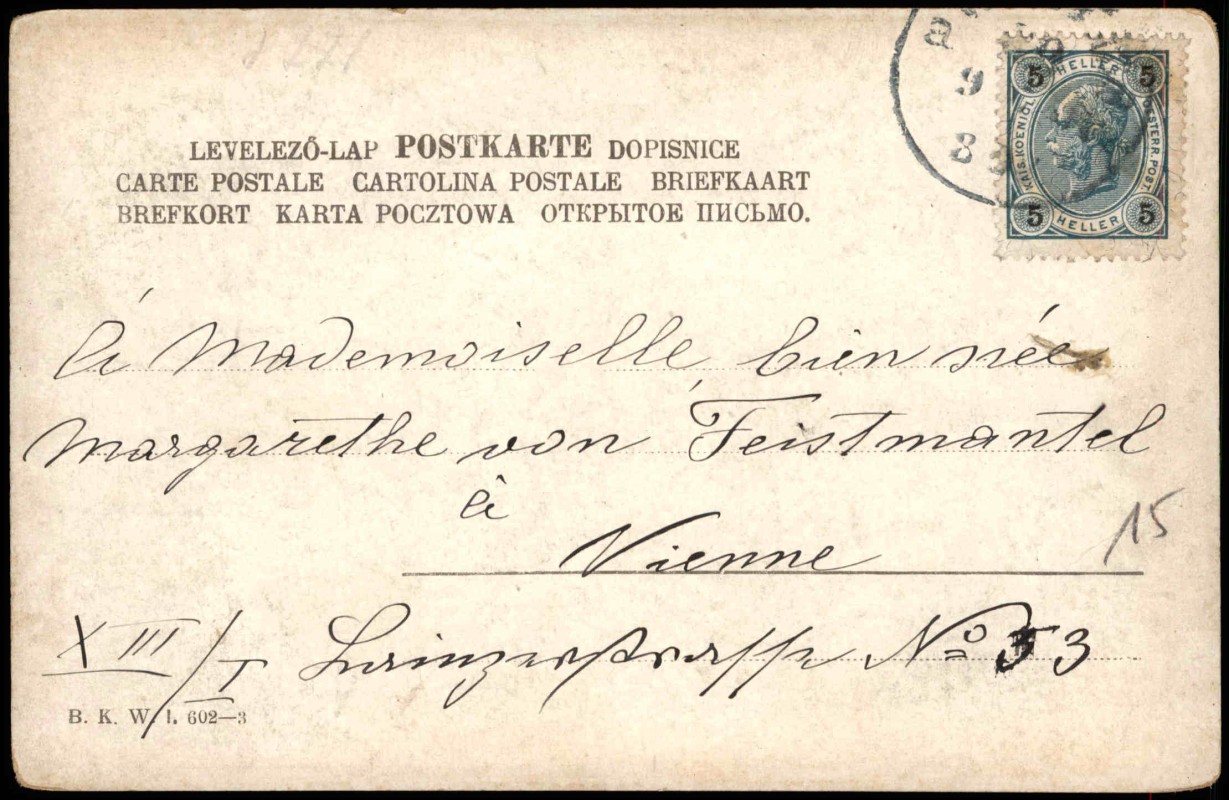 LEVELEZŐ-LAP POSTKARTE DOPISNICE
CARTE POSTALE CARTOLINA POSTALE BRIEFKAART
BREFKORT KARTA POCZTOWA ОТКРЫТОЕ ПИСЬМО.
5 HELLER 5
KAIS. KOENIGL. OESTERR. POST.
5 HELLER 5
9
8
À Mademoiselle bien née
Margarethe von Feistmantel
à
Vienne
15
XIII/I Lainzerstrasse No 53
B. K. W. I. 602—3